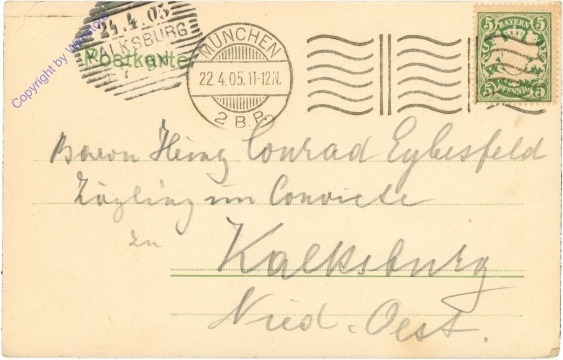 24.4.05
KALKSBURG
Postkarte
MÜNCHEN
22.4.05.11-12N.
2 B.P.
5 BAYERN 5
5 PFENNIG 5
Copyright by
Baron Heinz Conrad Eybesfeld
Zögling im Convicte
zu
Kalksburg
Nied. Oest.